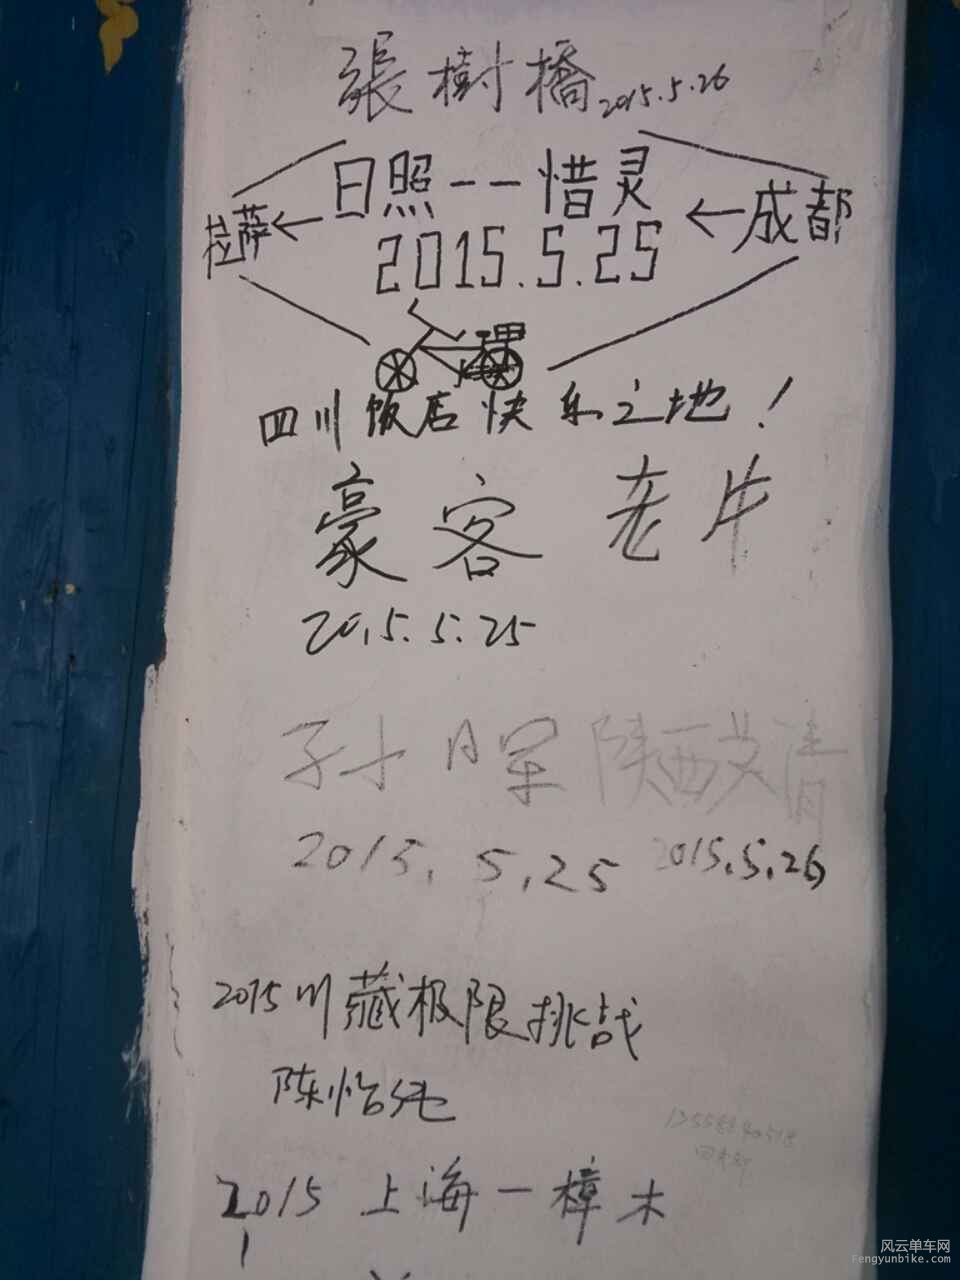 張樹橋 2015.5.26
日照--惜灵
拉萨←
←成都
2015.5.25
四川饭店快乐之地!
豪客 老牛
2015.5.25
孙 陕西艾清
2015.5.25 2015.5.26
2015川藏极限挑战
陈怡纯
2015 上海一樟木
风云单车网
Fengyunbike.com